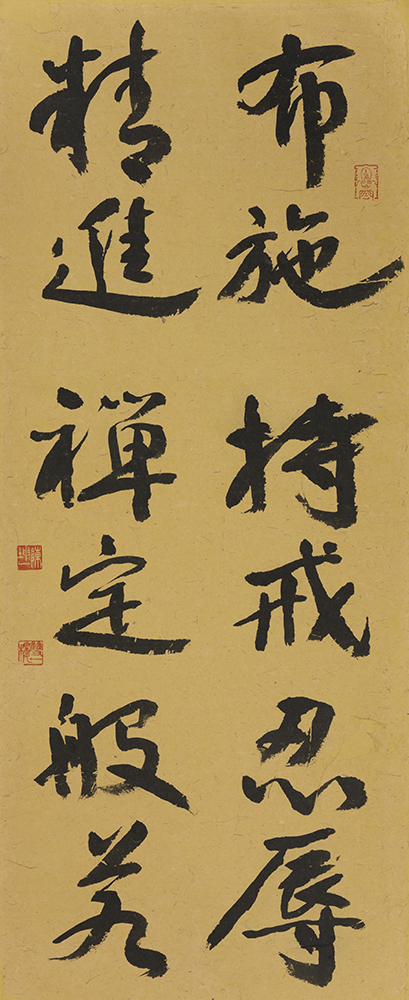 布施持戒忍辱
精進禪定般若